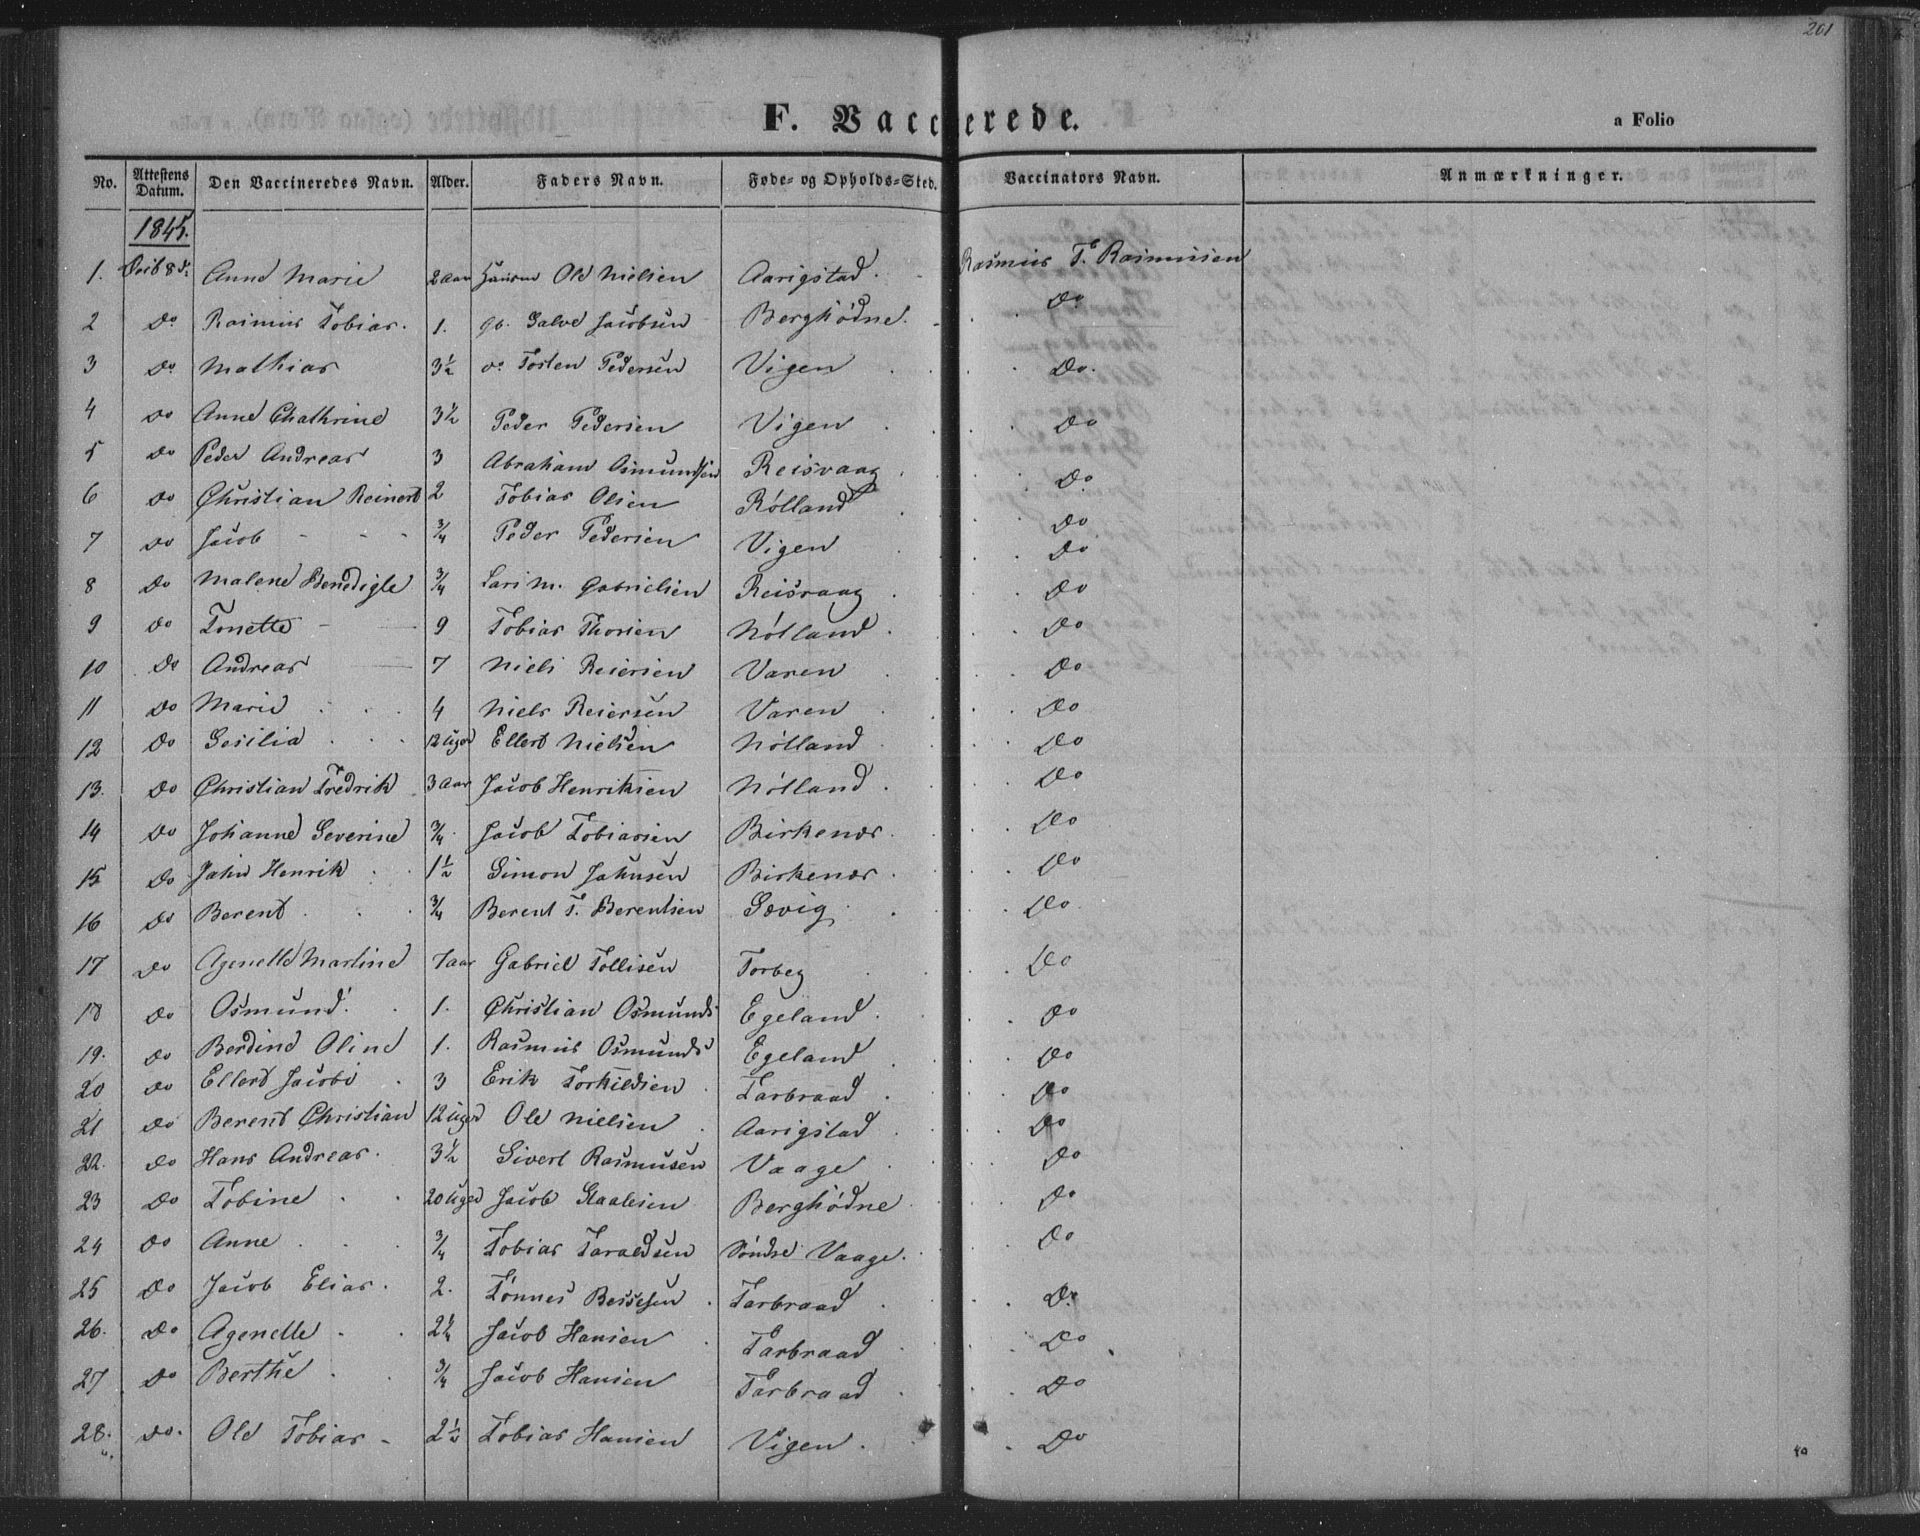 201
F. Vaccinerede.
a Folio
No. Attestens Datum. Den Vaccineredes Navn. Alder. Faders Navn. Føde- og Opholds-Sted. Vaccinators Navn. Anmærkninger.
1845.
1. Anne Marie 2 aar Ole Nielsen Aarigstad. Rasmus T. Rasmussen
2 Do Rasmus Tobias. 1. Salve Jacobsen Berghødne. Do
3 Do Mathias 3½ Do Tosten Pedersen Vigen Do.
4 Do Anne Chathrine 3½ Peder Pedersen Vigen Do
5 Do Peder Andreas 3 Abraham Osmundsen Reisvaag Do
6 Do Christian Reinert 2 Tobias Olsen Rølland Do
7 Do Jacob ¾ Peder Pedersen Vigen Do
8 Do Malene Benedigte ¾ Lars M. Gabrielsen Reisvaag Do
9 Do Tonette 9 Tobias Thorsen Nølland Do
10 Do Andreas 7 Niels Reiersen Varen Do
11 Do Marie 4 Niels Reiersen Varen Do
12 Do Sesilia 12 Uger Ellert Nielsen Nølland Do
13. Do Christian Fredrik 3 aar Jacob Henriksen Nølland Do
14 Do Johanne Severine ¾ Jacob Tobiasen Birkenæs Do
15 Do Jahn Henrik 1½ Simon Jahnsen Birkenæs Do
16 Do Berent ¾ Berent T. Berentsen Sævig Do
17 Do Agenette Martine 7 aar Gabriel Tollisen Torbeg Do
18 Do Osmund 1. Christian Osmunds Egeland Do
19. Do Berdine Oline 1. Rasmus Osmunds Egeland Do
20 Do Ellert Jacobi 3 Erik Torkildsen Tarbraad Do
21 Do Berent Christian 12 Uger Ole Nielsen Aarigstad Do
22. Do Hans Andreas. 3½ Sivert Rasmusen Vaage Do
23 Do Tobine 20 Uger Jacob Staalesen Berghødne Do
24 Do Anne ¾ Tobias Taraldsen Søndre Vaage. Do
25 Do Jacob Elias. 2. Tønnes Bessesen Tarbraad Do
26. Do Agenette 2¼ Jacob Hansen Tarbraad Do
27 Do Berthe ¾ Jacob Hansen Tarbraad Do
28. Do. Ole Tobias 2½ Tobias Hansen Vigen. Do